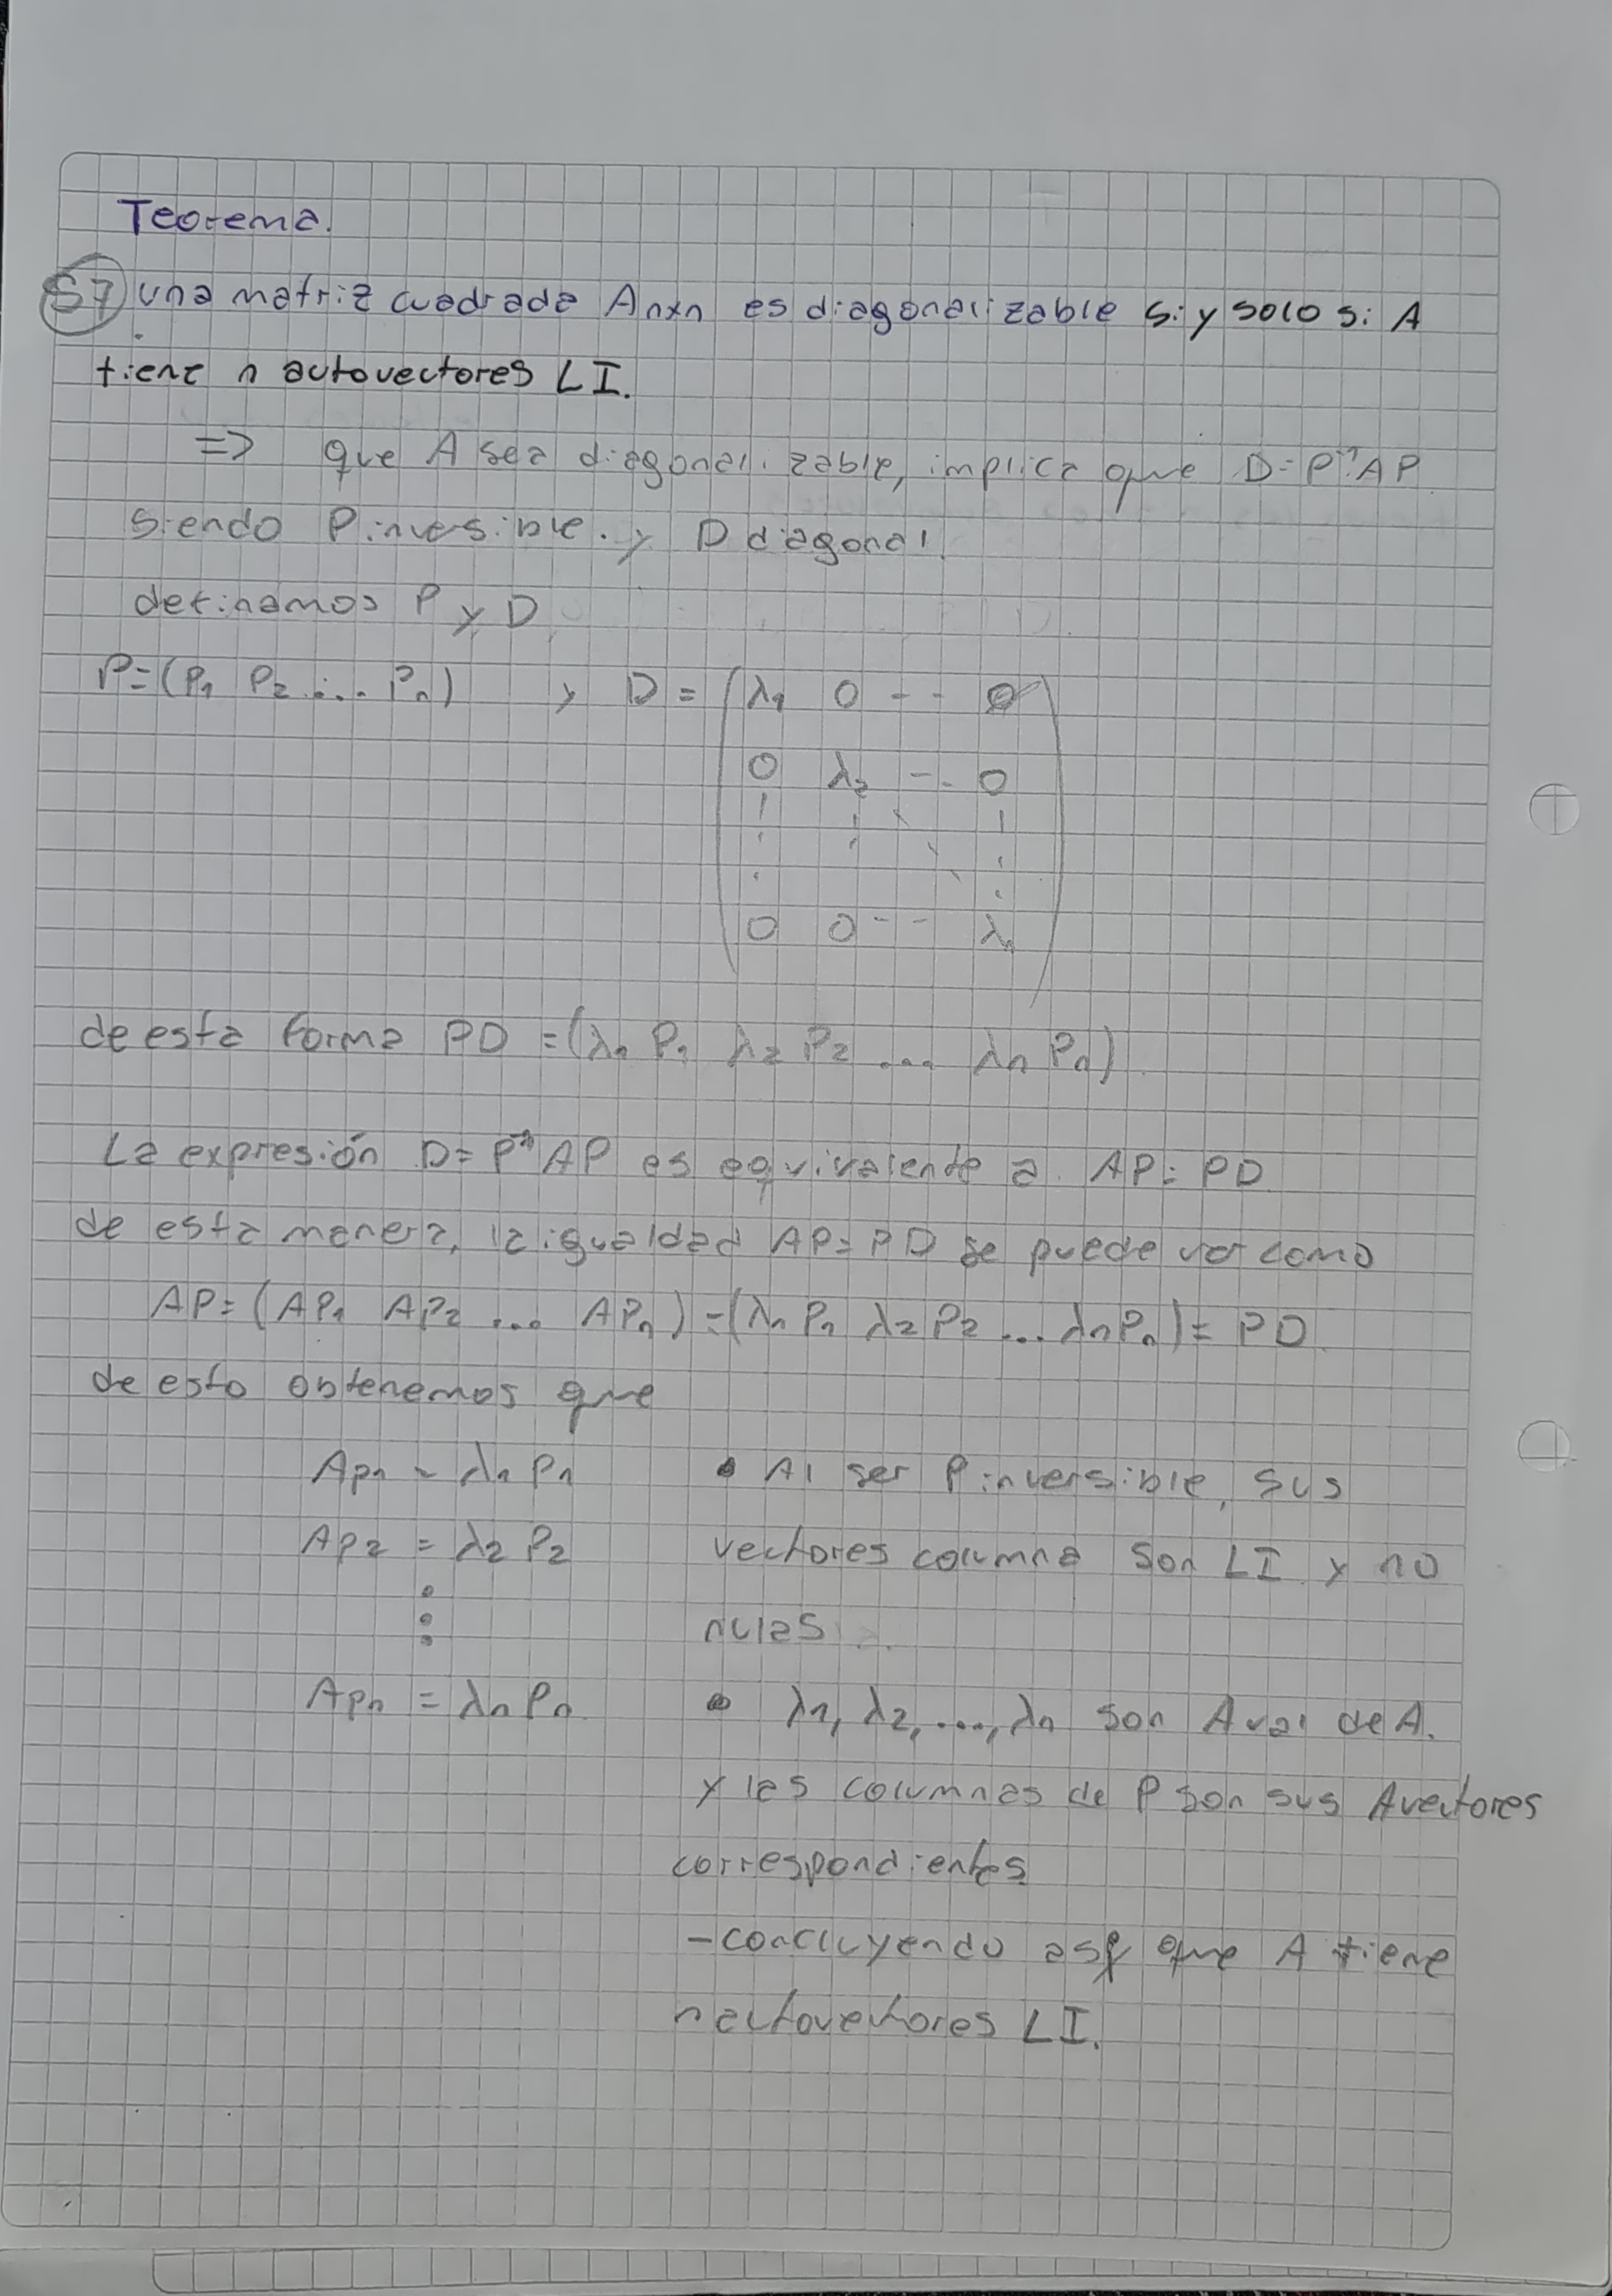 Teorema.
57 una matriz cuadrada Anxn es diagonalizable si y solo si A
tiene n autovectores LI.
=> que A sea diagonalizable, implica que D=P⁻¹AP
siendo P inversible. y D diagonal.
definamos P y D
P=(P1 P2 ... Pn) y D = (λ1 0 -- 0
0 λ2 -- 0
0 0 -- λn)
de esta forma PD =(λ1 P1 λ2 P2 ... λn Pn)
La expresión D= P⁻¹AP es equivalente a AP= PD
de esta manera, la igualdad AP= PD se puede ver como
AP=(AP1 AP2 ... APn)=(λ1 P1 λ2 P2 ... λn Pn)= PD
de esto obtenemos que
Ap1 = λ1 P1 • Al ser P inversible, sus
Ap2 = λ2 P2 vectores columna son LI y no
⋮ nulas
Apn = λn Pn • λ1, λ2, ..., λn son Aval de A.
y las columnas de P son sus Avectores
correspondientes
-concluyendo así que A tiene
n autovectores LI.